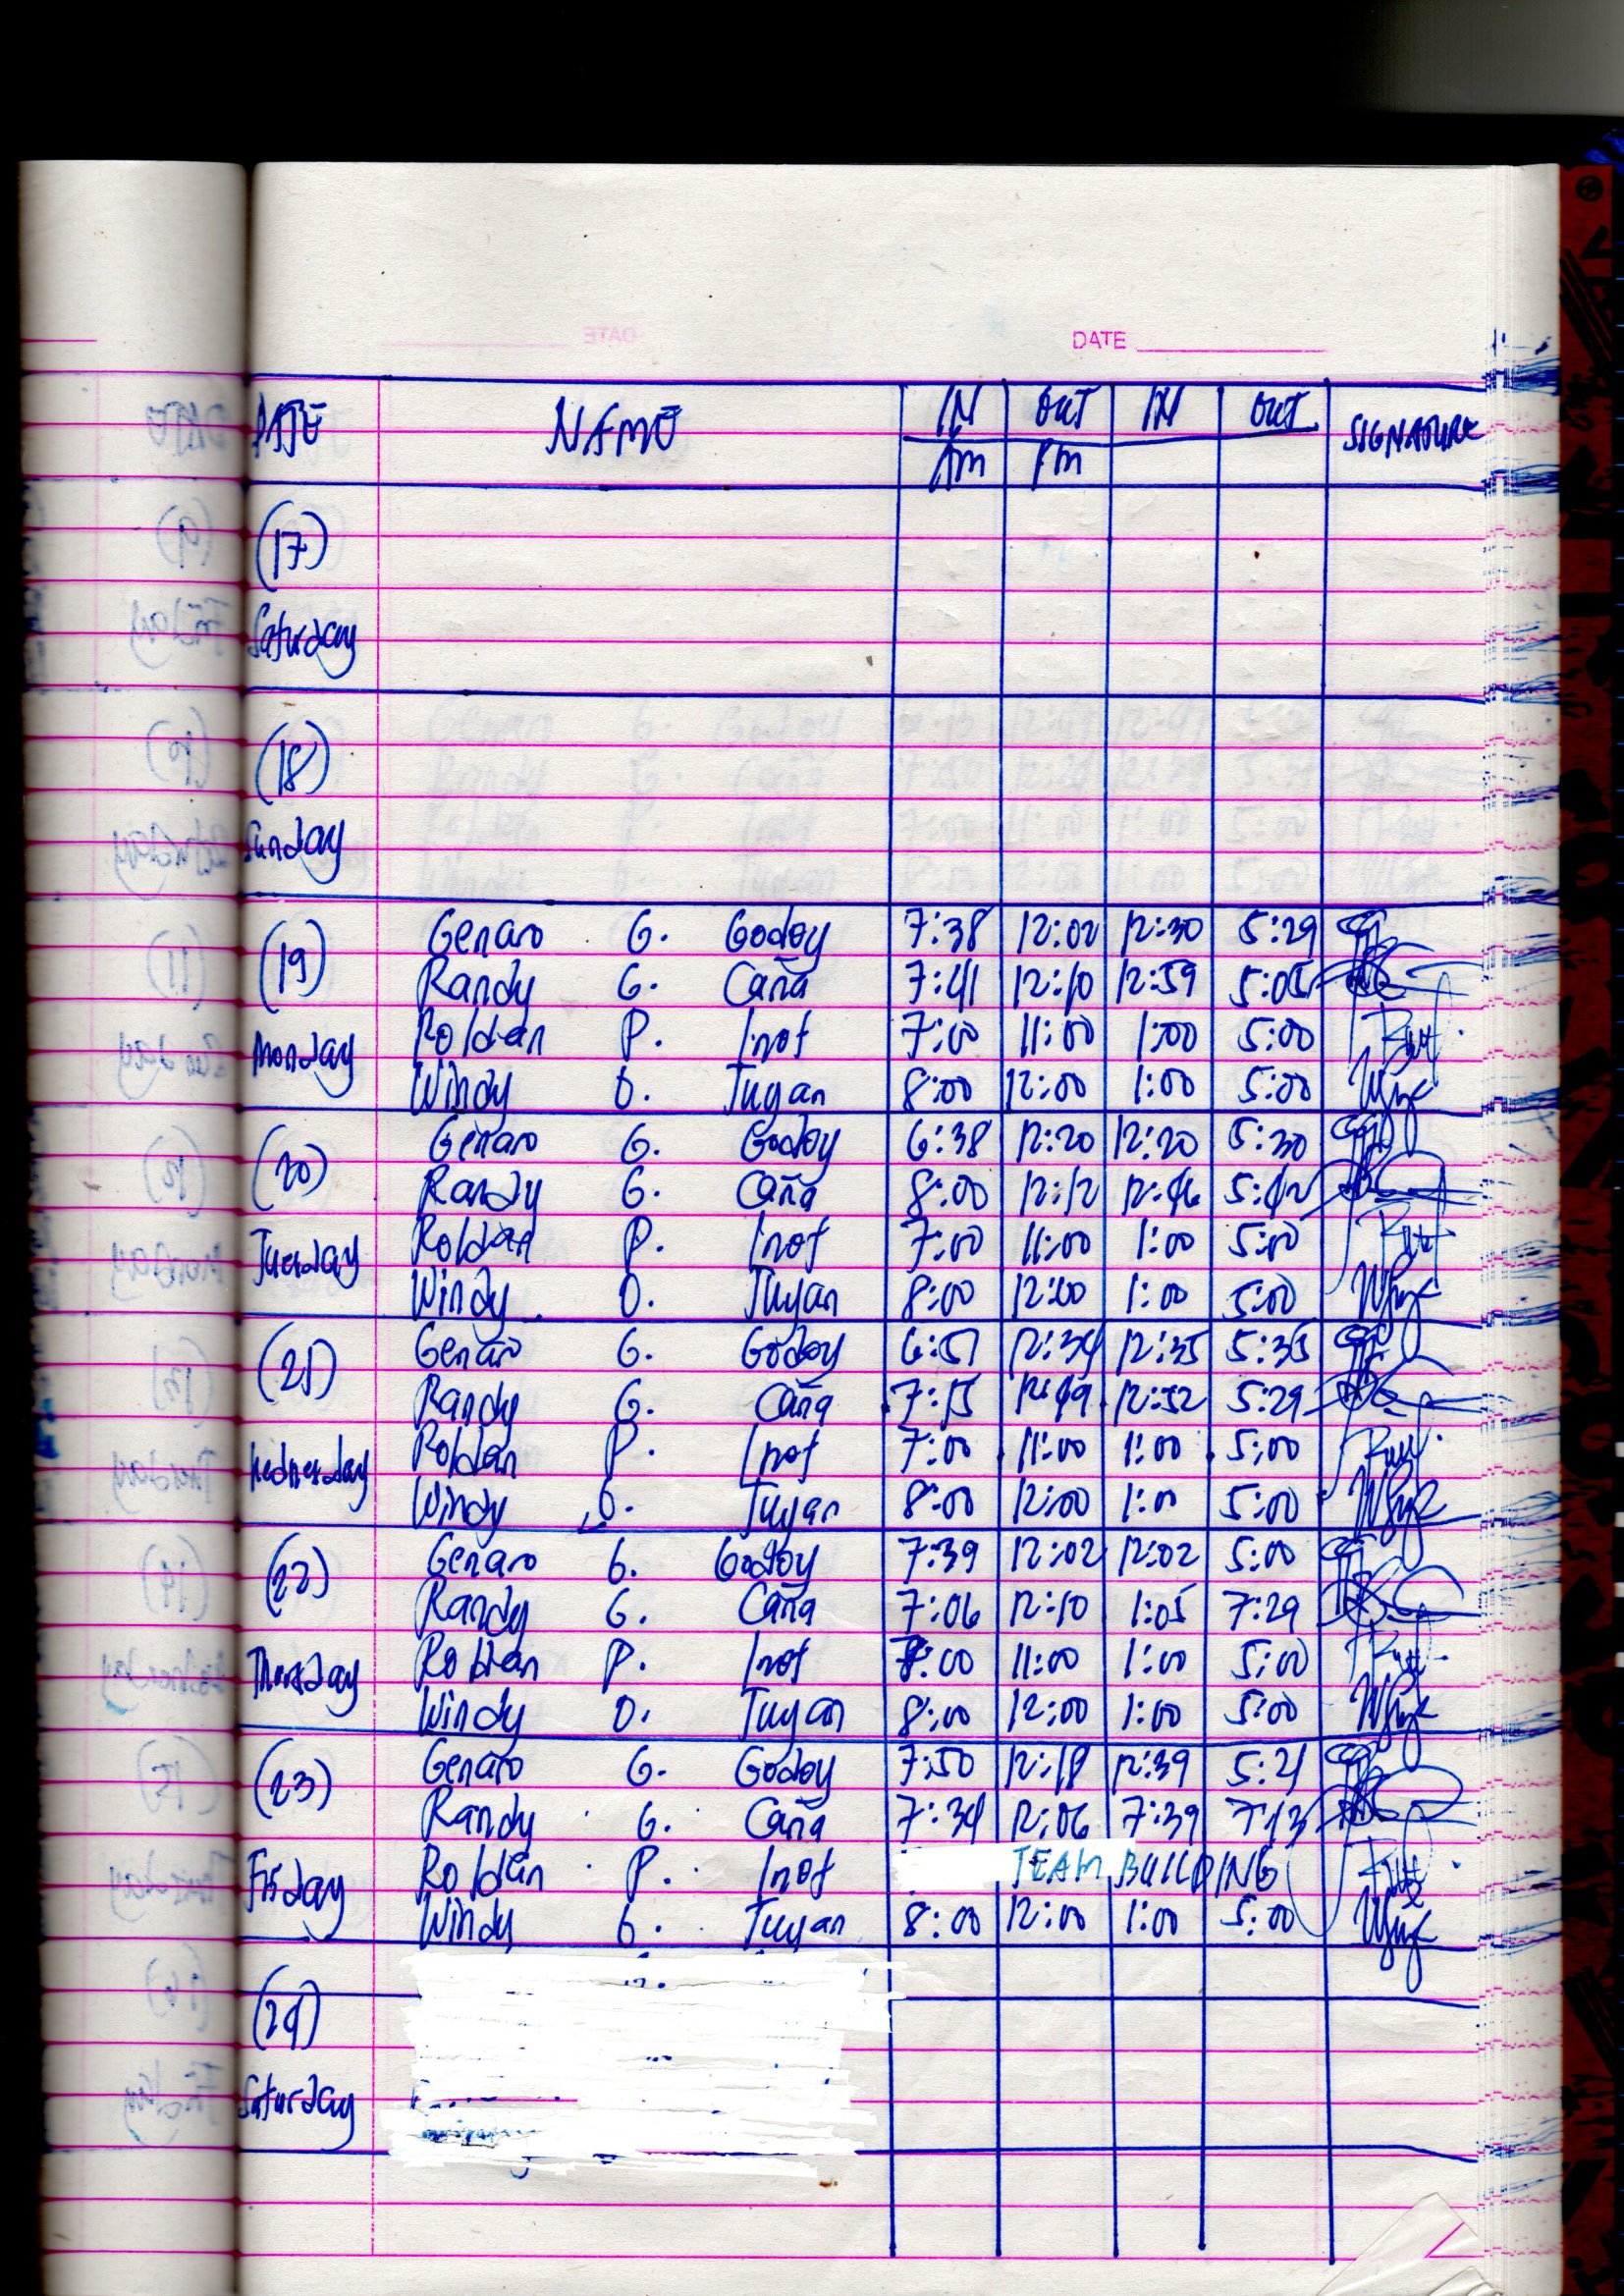 DATE
DATE NAME IN OUT IN OUT SIGNATURE
Am Pm
(17)
Saturday
(18)
Sunday
(19) Genaro G. Godoy 7:38 12:02 12:30 5:29
Randy G. Caña 7:41 12:10 12:59 5:05
Monday Roldan P. Inot 7:00 11:00 1:00 5:00
Windy O. Tuyan 8:00 12:00 1:00 5:00
(20) Genaro G. Godoy 6:38 12:20 12:20 5:30
Randy G. Caña 8:00 12:12 12:46 5:42
Tuesday Roldan P. Inot 7:00 11:00 1:00 5:00
Windy O. Tuyan 8:00 12:00 1:00 5:00
(21) Genaro G. Godoy 6:51 12:34 12:35 5:35
Randy G. Caña 7:15 12:49 12:52 5:29
Wednesday Roldan P. Inot 7:00 11:00 1:00 5:00
Windy O. Tuyan 8:00 12:00 1:00 5:00
(22) Genaro G. Godoy 7:39 12:02 12:02 5:00
Randy G. Caña 7:06 12:10 1:05 7:29
Thursday Roldan P. Inot 7:00 11:00 1:00 5:00
Windy O. Tuyan 8:00 12:00 1:00 5:00
(23) Genaro G. Godoy 7:50 12:18 12:39 5:21
Randy G. Caña 7:34 12:06 7:39 7:13
Friday Roldan P. Inot TEAM BUILDING
Windy O. Tuyan 8:00 12:00 1:00 5:00
(24)
Saturday